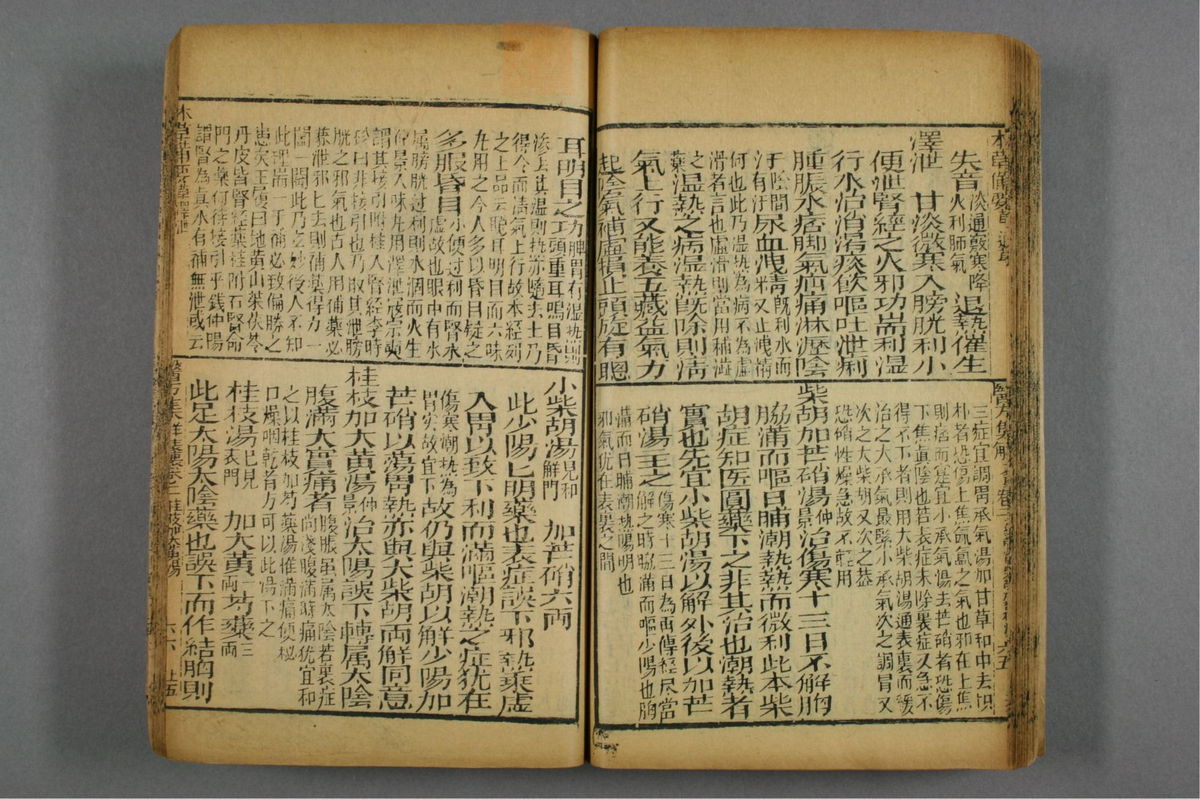 失音淡通竅寒降火利肺氣 退熱催生
澤泄 甘淡微寒入膀胱利小
便泄腎經之火邪功耑利湿
行水治消渴痰飲嘔吐泄痢
腫脹水痞脚氣疝痛淋瀝陰
汗陰間有汗尿血洩精既利水而又止洩精
何也此乃湿热為病不為虛
滑者言也虛滑則當用補澁
之藥湿熱之病湿熱既除則清
氣上行又能養五藏益氣力
起陰氣補虛損止頭旋有聰
三症宜調胃承氣湯加甘草和中去枳
朴者恐傷上焦氤氳之氣也邪在上焦
則痞而實宜小承氣湯去芒硝者恐傷
下焦真陰也若表症未除裏症又急不
得不下者則用大柴胡湯通表裏而緩
治之大承氣最緊小承氣次之調胃又
次之大柴胡又次之葢
恐硝性燥急故不輕用
柴胡加芒硝湯仲景治傷寒十三日不解胸
脇滿而嘔日晡潮熱熱而微利此本柴
胡症知医圓藥下之非其治也潮熱者
實也先宜小柴胡湯以解外後以加芒
硝湯主之傷寒十三日為再傳經尽當
解之時脇滿而嘔少陽也胸
滿而日晡潮热陽明也
邪氣犹在表裏之間
耳明目之功脾胃有湿热則頭重耳鳴目昏
滲去其湿則热亦随去土乃
得令而清氣上行故本經列
之上品云聡耳明目而六味
丸用之今人多以昏目疑之
多服昏目小便过利而腎水
虛故也眼中有水
屬膀胱过利則水涸而火生
仲景八味丸用澤泄寇宗奭
謂其接引附桂入腎經李時
珍曰非接引也乃取其泄膀
胱之邪氣也古人用補藥必
兼泄邪邪去則補藥得力一
闢一闔此乃玄妙後人不知
此理耑一于補必致偏勝之
患矣王履曰地黄山茱伏苓
丹皮皆腎經藥桂附右腎命
門之藥何待接引乎錢仲陽
謂腎為真水有補無泄或云
小柴胡湯見和解門 加芒硝六両
此少陽阝明藥也表症誤下邪热乘虛
入胃以致下利而滿嘔潮熱之症犹在
傷寒潮热為胃实故宜下故仍與柴胡以解少陽加
芒硝以蕩胃熱亦與大柴胡両解同意
桂枝加大黃湯仲景治太陽誤下轉属太陰
腹滿大實痛者腹脹虽属太陰若裏症
尚淺腹滿時痛犹宜和
之以桂枝加芍藥湯惟滿痛便秘
口燥咽乾者方可以此湯下之
桂枝湯已見表門 加大黄一両芍藥三両
此足太陽太陰藥也誤下而作結胸則